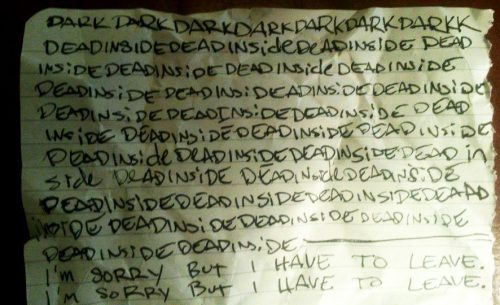 DARK DARK DARKDARKDARKDARKDARKK
DEADINSIDEDEADINSideDeADINSiDE DEAD
iNSiDEDEADINSiDE DEADINSideDEADINSIDE
DEADINSiDE DEADINSiDEADINSIDEDEADINSiDE
DEADINSiDEDEADINSIDEDEADiNSiDE DEAD
INSiDE DEADINSIDEDEADINSIDE DEAD INSIDE
DEADINSide DEADINSIDEDEADINSIDEDEAD in
side DEADINSIDE DEADiNSideDEADINSiDE
DEADINSIDEDEADINSIDEDEADINSIDEDEAAD
iNSIDE DEADINSIDEDEADINSIDE DEADINSIDE
DEADINSIDEDEADINSiDE
I'M SORRY BUT I HAVE TO LEAVE.
I'M SORRY BUT I HAVE TO LEAVE.